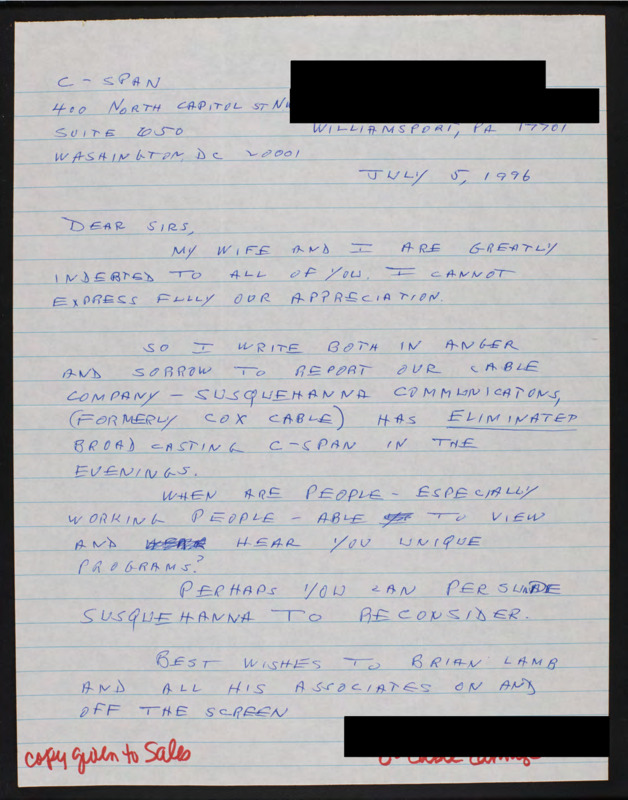 C-SPAN
400 NORTH CAPITOL ST NW
SUITE 2050
WILLIAMSPORT, PA 17701
WASHINGTON, DC 20001
JULY 5, 1996
DEAR SIRS,
MY WIFE AND I ARE GREATLY
INDEBTED TO ALL OF YOU. I CANNOT
EXPRESS FULLY OUR APPRECIATION.
SO I WRITE BOTH IN ANGER
AND SORROW TO REPORT OUR CABLE
COMPANY - SUSQUEHANNA COMMUNICATONS,
(FORMERLY COX CABLE) HAS ELIMINATED
BROADCASTING C-SPAN IN THE
EVENINGS.
WHEN ARE PEOPLE - ESPECIALLY
WORKING PEOPLE - ABLE TO VIEW
AND HEAR YOU UNIQUE
PROGRAMS?
PERHAPS YOU CAN PERSUADE
SUSQUEHANNA TO RECONSIDER.
BEST WISHES TO BRIAN LAMB
AND ALL HIS ASSOCIATES ON AND
OFF THE SCREEN
copy given to Sales